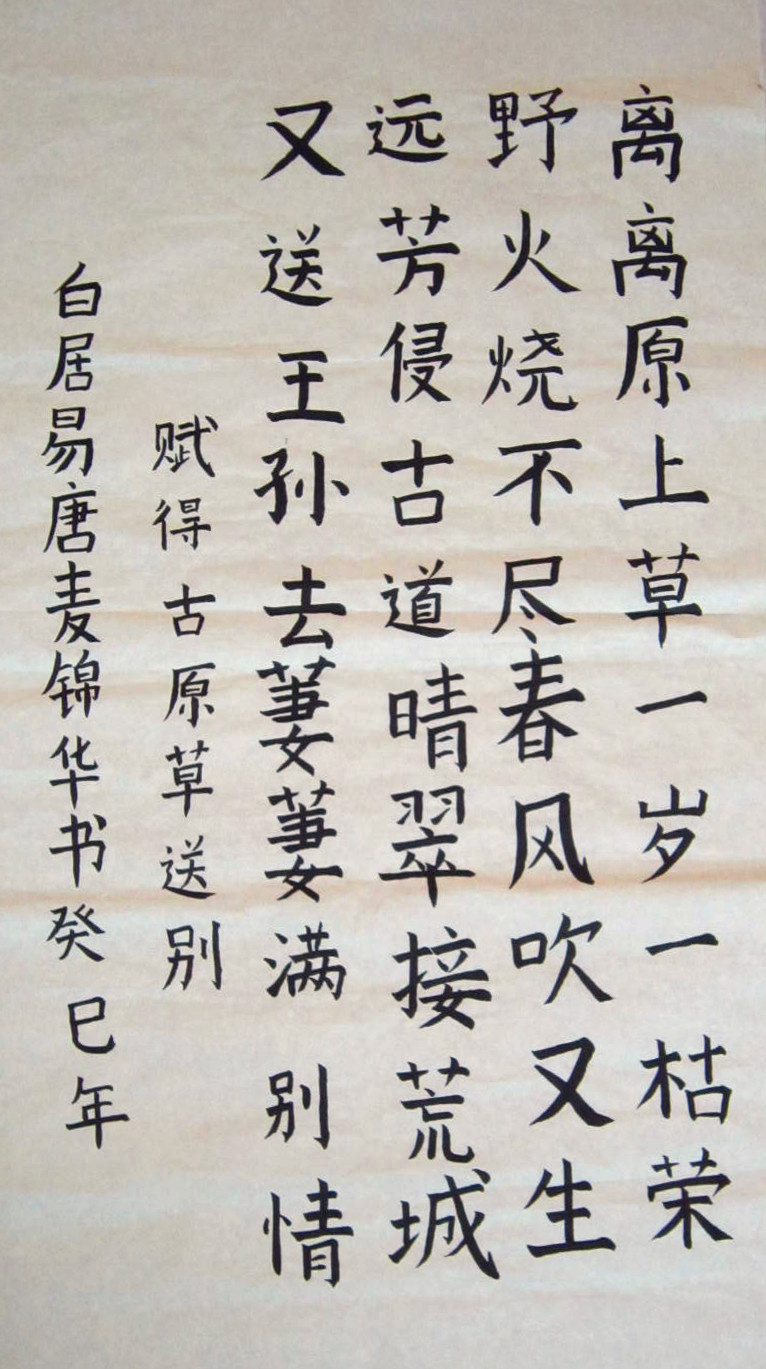 离离原上草一岁一枯荣
野火烧不尽春风吹又生
远芳侵古道晴翠接荒城
又送王孙去萋萋满别情
赋得古原草送别
白居易唐麦锦华书癸巳年